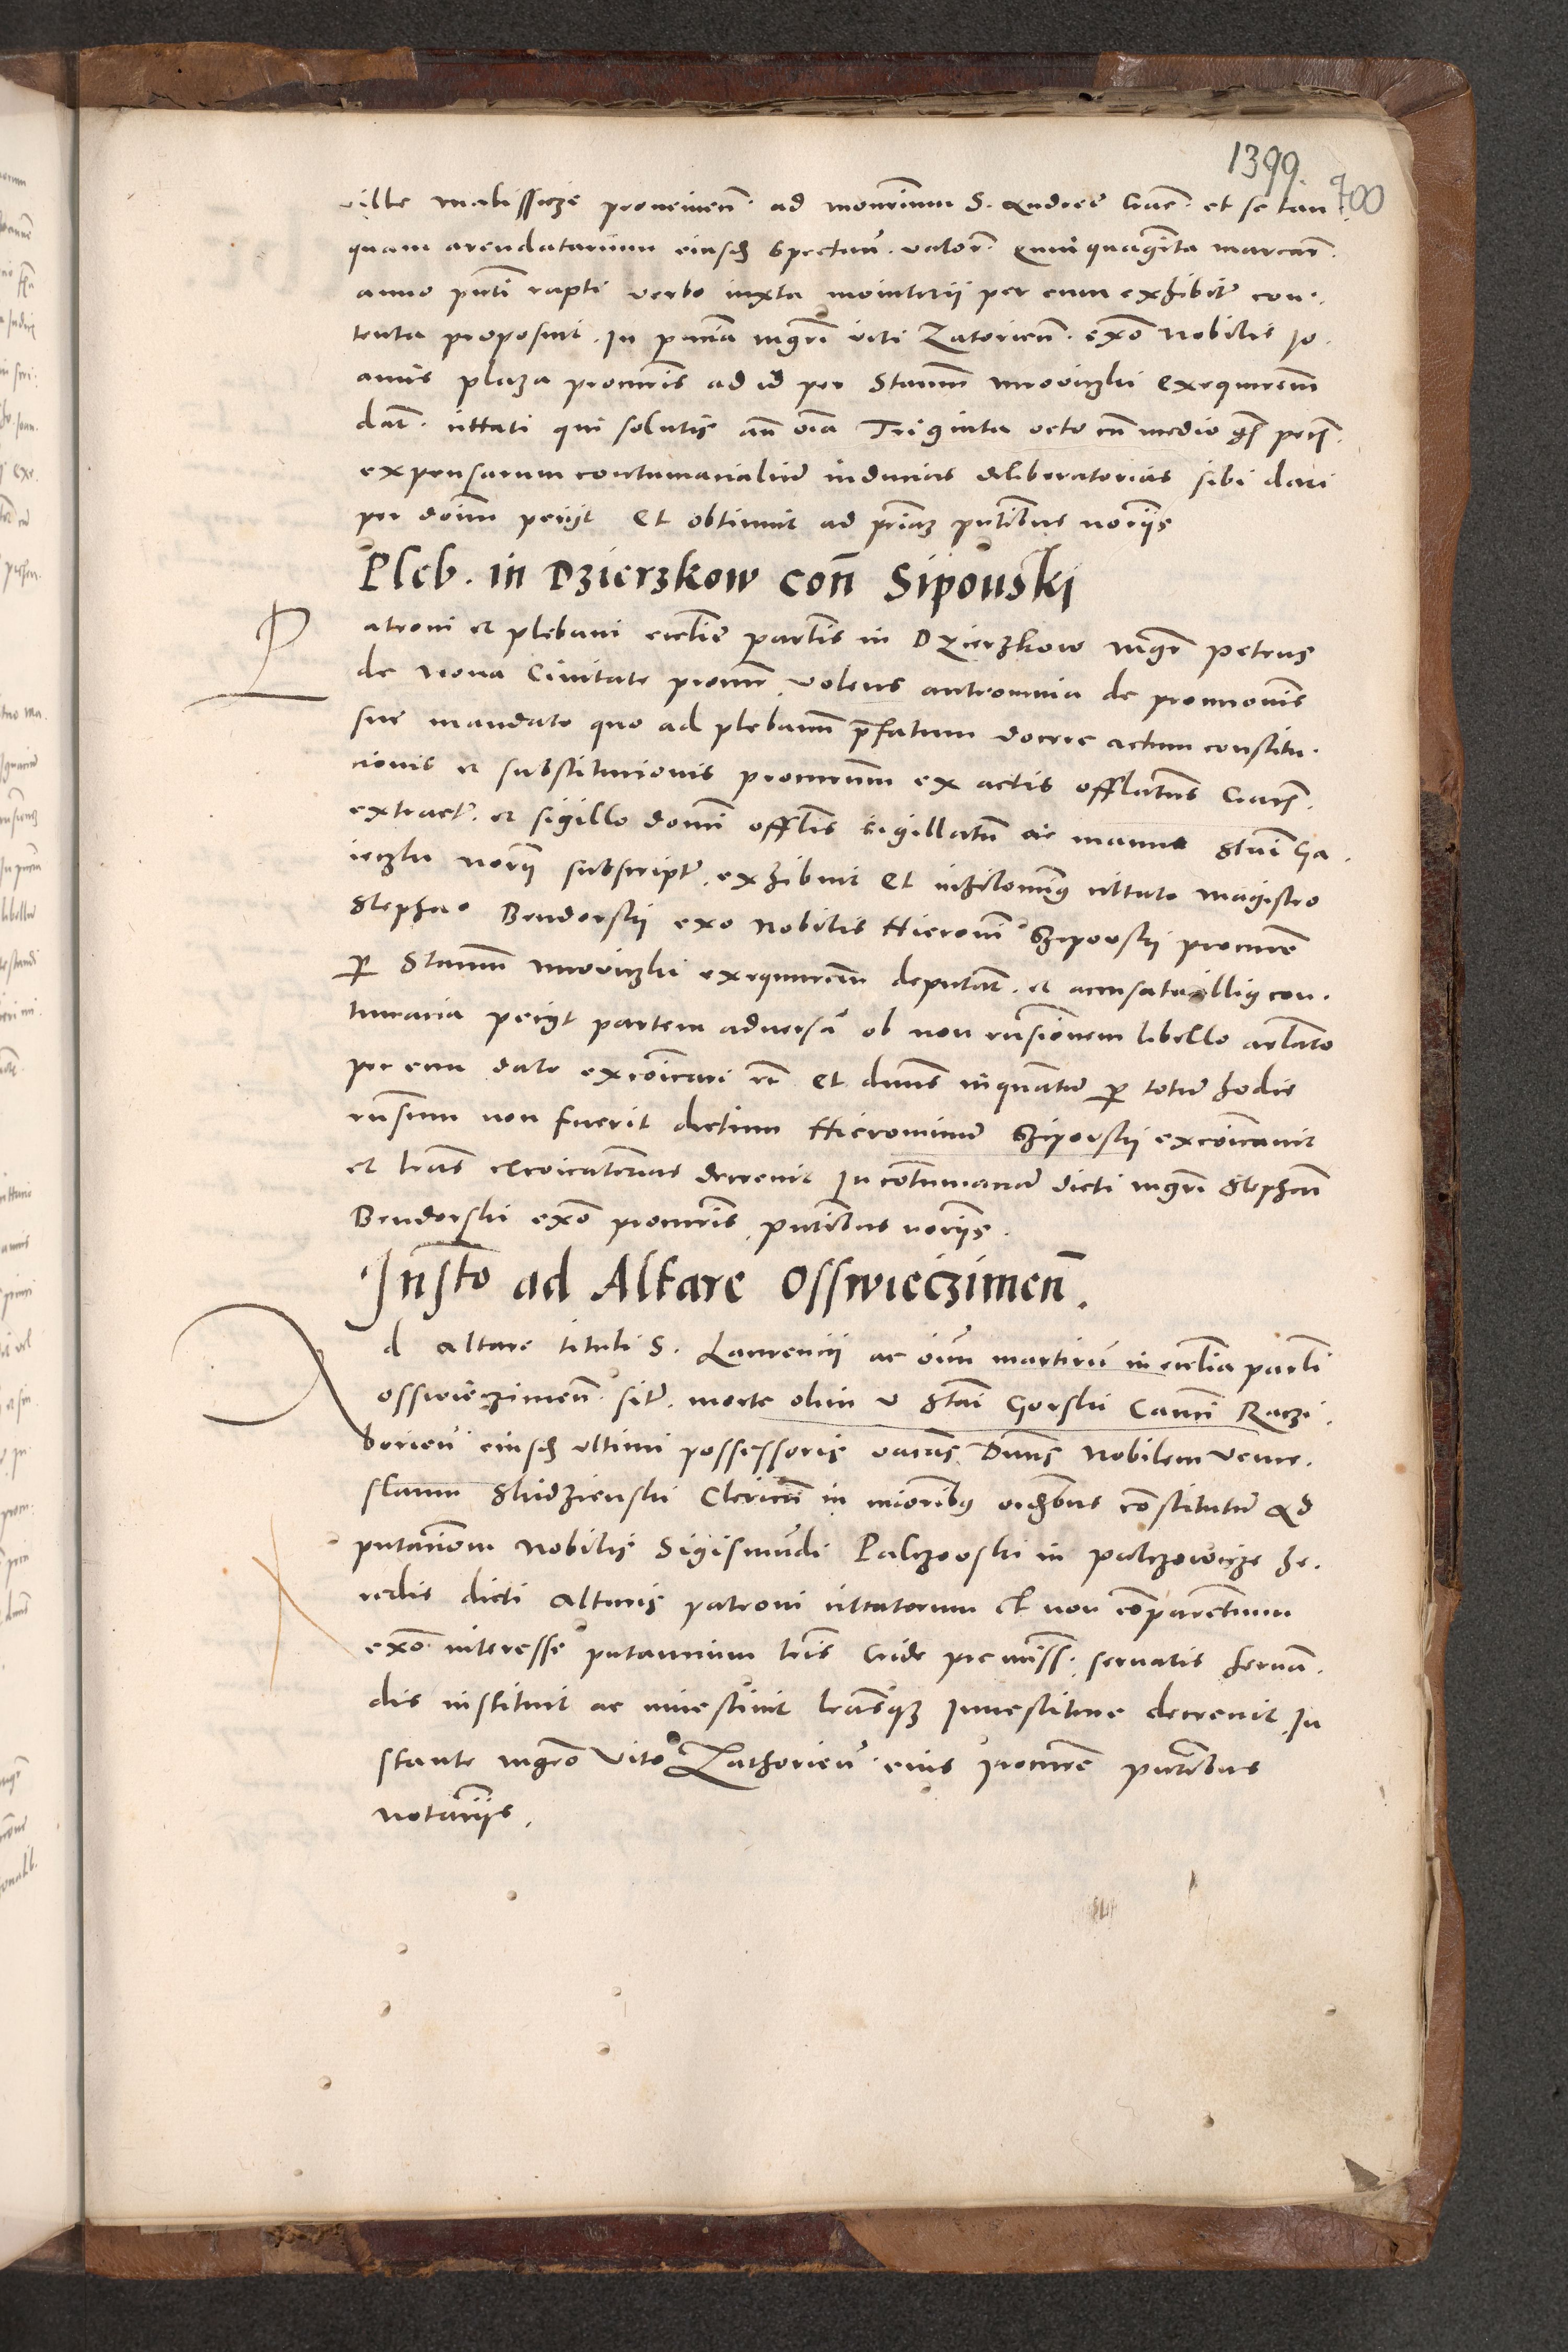 1399.
700
ville Malissicze provenien̄. ad monrium S. Andree Crac̄. et se tan
quam arendatarium eiusdē spectan̄. valor̄. quinquaginta marcar̄.
anno pn̄ti rapti verbo iuxta monitorii per eum exhibit̄ con.
tenta proposuit. In pn̄cia mgr̄i Viti Zatorien̄. exō Nobilis Jo.
annis plaza procur̄is ad id per Stanm̄ executorem
dat̄. citati qui solutis an̄ oīa Triginta octo cū medio gr̄. pecun̄.
expensarum contumacialiū inducias deliberatorias sibi dari
per dnūm petiit Et obtinuit ad pr̄iaȝ pn̄tibus nor̄iis
Pleb. in Dzierzkow con̄ Sipouski
Patroni et plebani eccl̄ie par̄lis in Dzierzkow mgr̄ Petrus
de Nova Civitate procur̄ volens anteomnia de procur̄onis
sue mandato quo ad plebanū p̄fatum docere actum constitu.
cionis et substitucionis procur̄um ex actis offl̄atus Crac̄.
extract̄. et sigillo domī offl̄is sigillatū ac manu Stanī Ga.
ieczki nor̄ii subscript̄. exhibuit Et nihilominꝰ citato magistro
Stephano Bendorskij exō Nobilis Hieronī Sziporskij procur̄e
p̄ Stanm̄ executorem deputat̄. et accusata illiꝰ con.
tumacia petiit partem adversā ob non rn̄sionem libello articlato
per eum dato excōicari etc̄ Et dnus inquantū p̄ totū hodie
rn̄sum non fuerit dictum Hieronimū Sziporskij excōicavit
et lr̄as excōicatorias decrevit In contumaciā dicti mgr̄i Stephani
Bendorski exō procur̄is pn̄tibus nor̄iis.
Insto ad Altare Osswieczimen̄.
Ad Altare tituli S. Laurencii ac oīum martirū in eccl̄ia par̄li
osswieczimen̄. sit̄. morte olim v Stani Gorski Canci Raczi.
borien̄ eiusdē ultimi possessoris vacan̄s Dnus Nobilem Vence.
slaum Skidzienski Clericū in minoribꝰ ordibus constitutū Ad
pn̄tacionem Nobilis Sigismūdi Palczowski in palczowicze he.
redis dicti Altaris patroni citatorum et non comparentium
exō interesse putancium lr̄is Cride premiss. servatis servan.
dis instituit ac investivit lr̄asqȝ Investiture decrevit In
stante mgr̄o Vito Zathorien̄. eius procur̄e pn̄tibus
notariis.